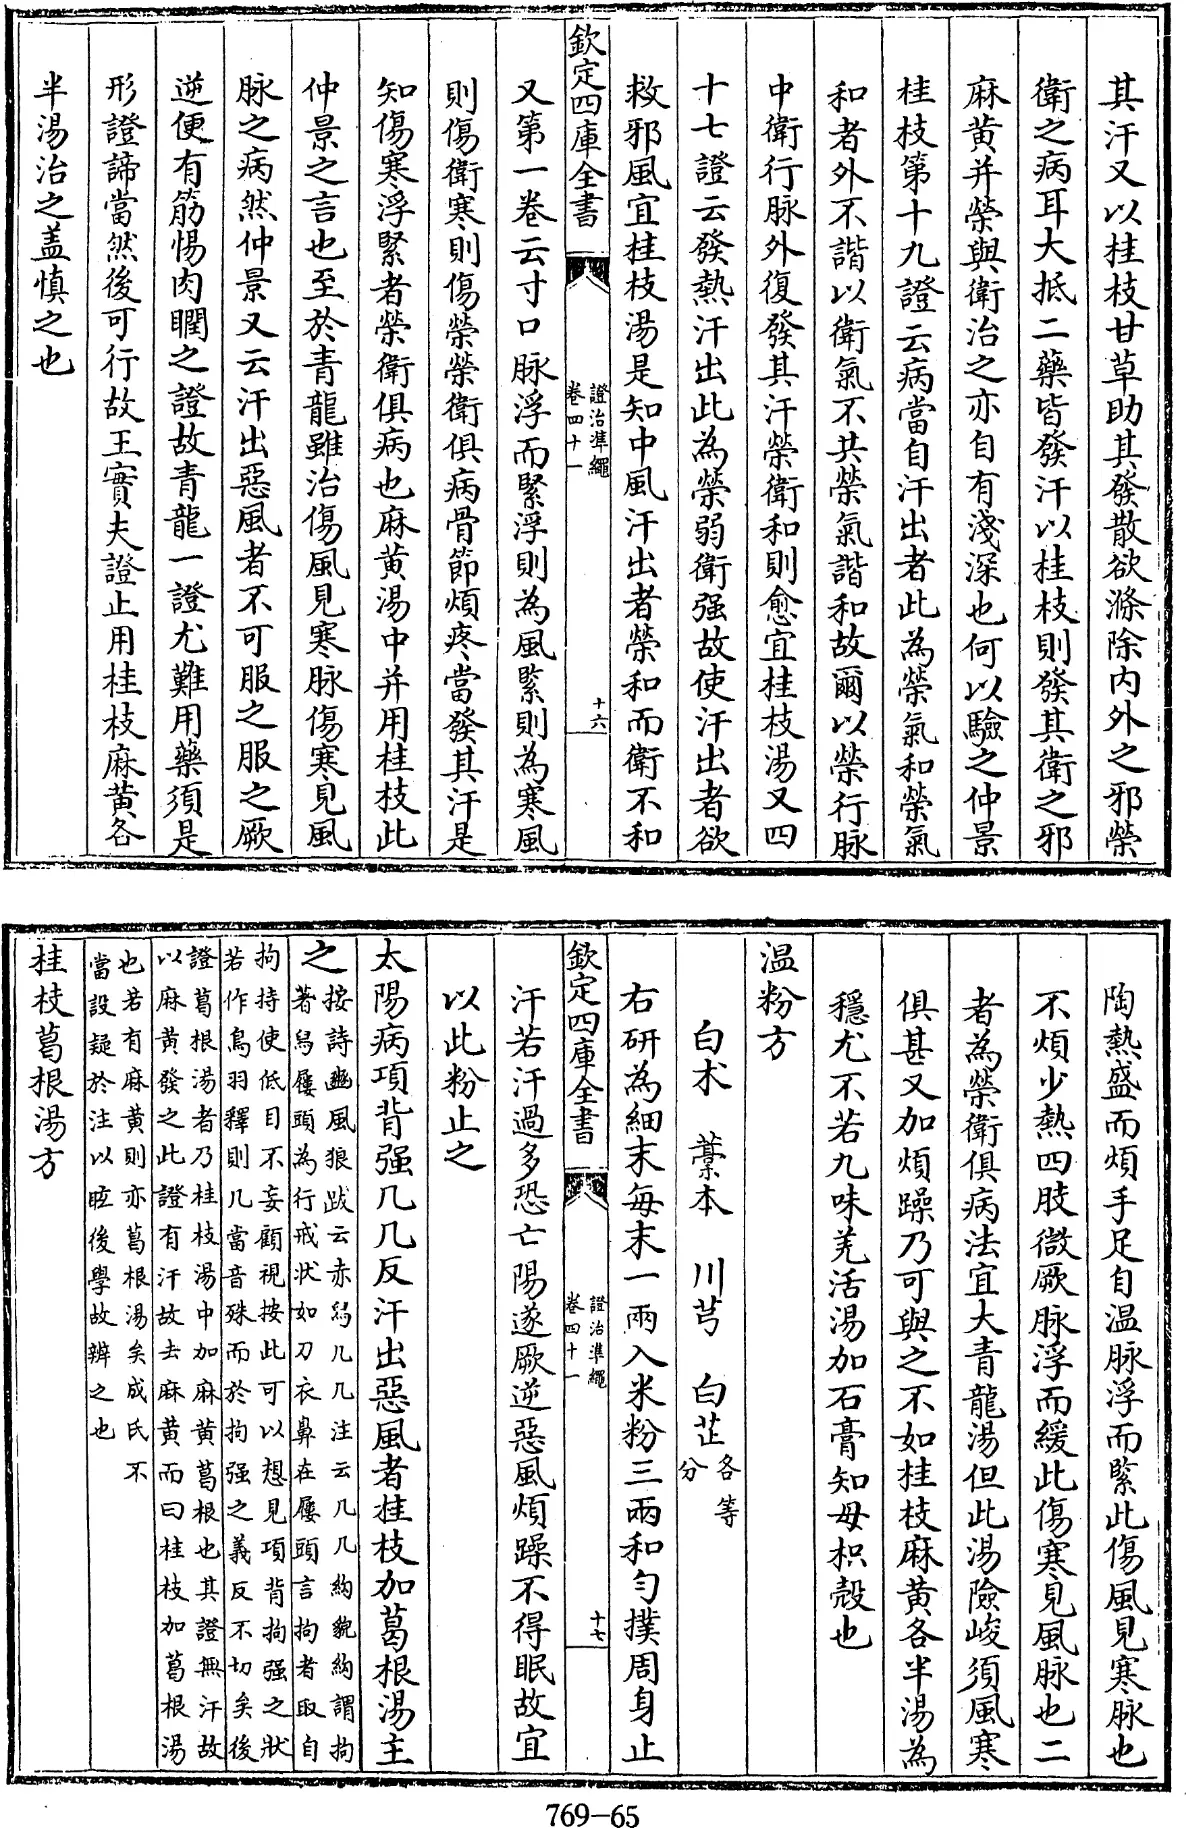 其汗又以桂枝甘草助其發散欲滌除内外之邪榮
衛之病耳大抵二藥皆發汗以桂枝則發其衛之邪
麻黄并榮與衛治之亦自有淺深也何以驗之仲景
桂枝第十九證云病當自汗出者此為榮氣和榮氣
和者外不諧以衛氣不共榮氣諧和故爾以榮行脉
中衛行脉外復發其汗榮衛和則愈宜桂枝湯又四
十七證云發熱汗出此為榮弱衛强故使汗出者欲
救邪風宜桂枝湯是知中風汗出者榮和而衛不和
欽定四庫全書
證治準繩
卷四十一
十六
又第一卷云寸口脉浮而緊浮則為風緊則為寒風
則傷衛寒則傷榮榮衛俱病骨節煩疼當發其汗是
知傷寒浮緊者榮衛俱病也麻黄湯中并用桂枝此
仲景之言也至於青龍雖治傷風見寒脉傷寒見風
脉之病然仲景又云汗出惡風者不可服之服之厥
逆便有筋惕肉瞤之證故青龍一證尤難用藥須是
形證諦當然後可行故王實夫證止用桂枝麻黄各
半湯治之盖慎之也
陶熱盛而煩手足自温脉浮而緊此傷風見寒脉也
不煩少熱四肢微厥脉浮而緩此傷寒見風脉也二
者為榮衛俱病法宜大青龍湯但此湯險峻須風寒
俱甚又加煩躁乃可與之不如桂枝麻黄各半湯為
穩尤不若九味羌活湯加石膏知母枳殼也
温粉方
白术 藁本 川芎 白芷各等
分
右研為細末每末一兩入米粉三兩和匀撲周身止
欽定四庫全書
證治準繩
卷四十一
十七
汗若汗過多恐亡陽遂厥逆惡風煩躁不得眠故宜
以此粉止之
太陽病項背强几几反汗出惡風者桂枝加葛根湯主
之按詩豳風狼跋云赤舄几几注云几几絇貌絇謂拘
著舄屨頭為行戒状如刀衣鼻在屨頭言拘者取自
拘持使低目不妄顧視按此可以想見項背拘强之狀
若作鳥羽釋則几當音殊而於拘强之義反不切矣後
證葛根湯者乃桂枝湯中加麻黄葛根也其證無汗故
以麻黄發之此證有汗故去麻黄而曰桂枝加葛根湯
也若有麻黄則亦葛根湯矣成氏不
當設疑於注以眩後學故辨之也
桂枝葛根湯方
769-65